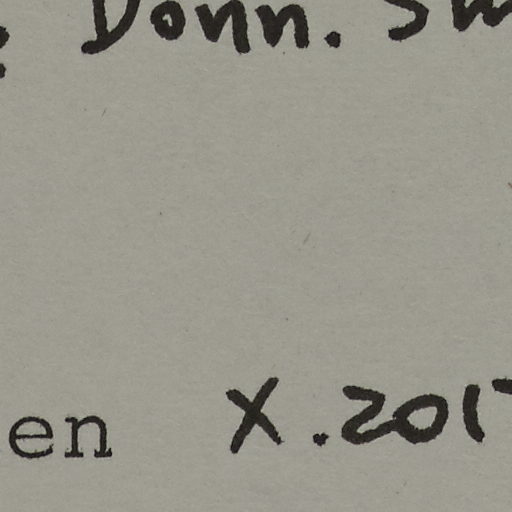 Donn. Sm
en X.201